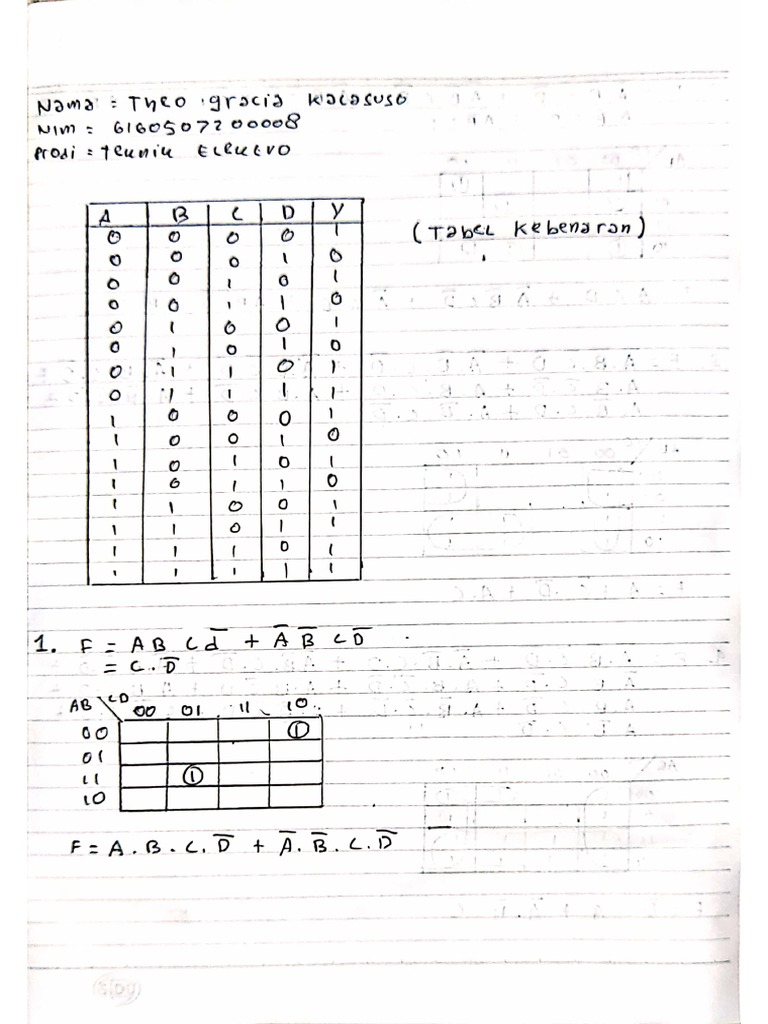 Nama : Theo gracia Kalasuso
Nim = 6160507200008
Prodi = Teknik Elektro
A B C D Y
0 0 0 0 1
0 0 0 1 0
0 0 1 0 1
0 0 1 1 0
0 1 0 0 1
0 1 0 1 0
0 1 1 0 1
0 1 1 1 1
1 0 0 0 1
1 0 0 1 0
1 0 1 0 1
1 0 1 1 0
1 1 0 0 1
1 1 0 1 1
1 1 1 0 1
1 1 1 1 1
(Tabel Kebenaran)
1. F = A B C d̅ + A̅ B̅ C D̅
= C . D̅
AB \ CD 00 01 11 10
00 1
01
11 1
10
F = A . B . C . D̅ + A̅ . B̅ . C . D̅